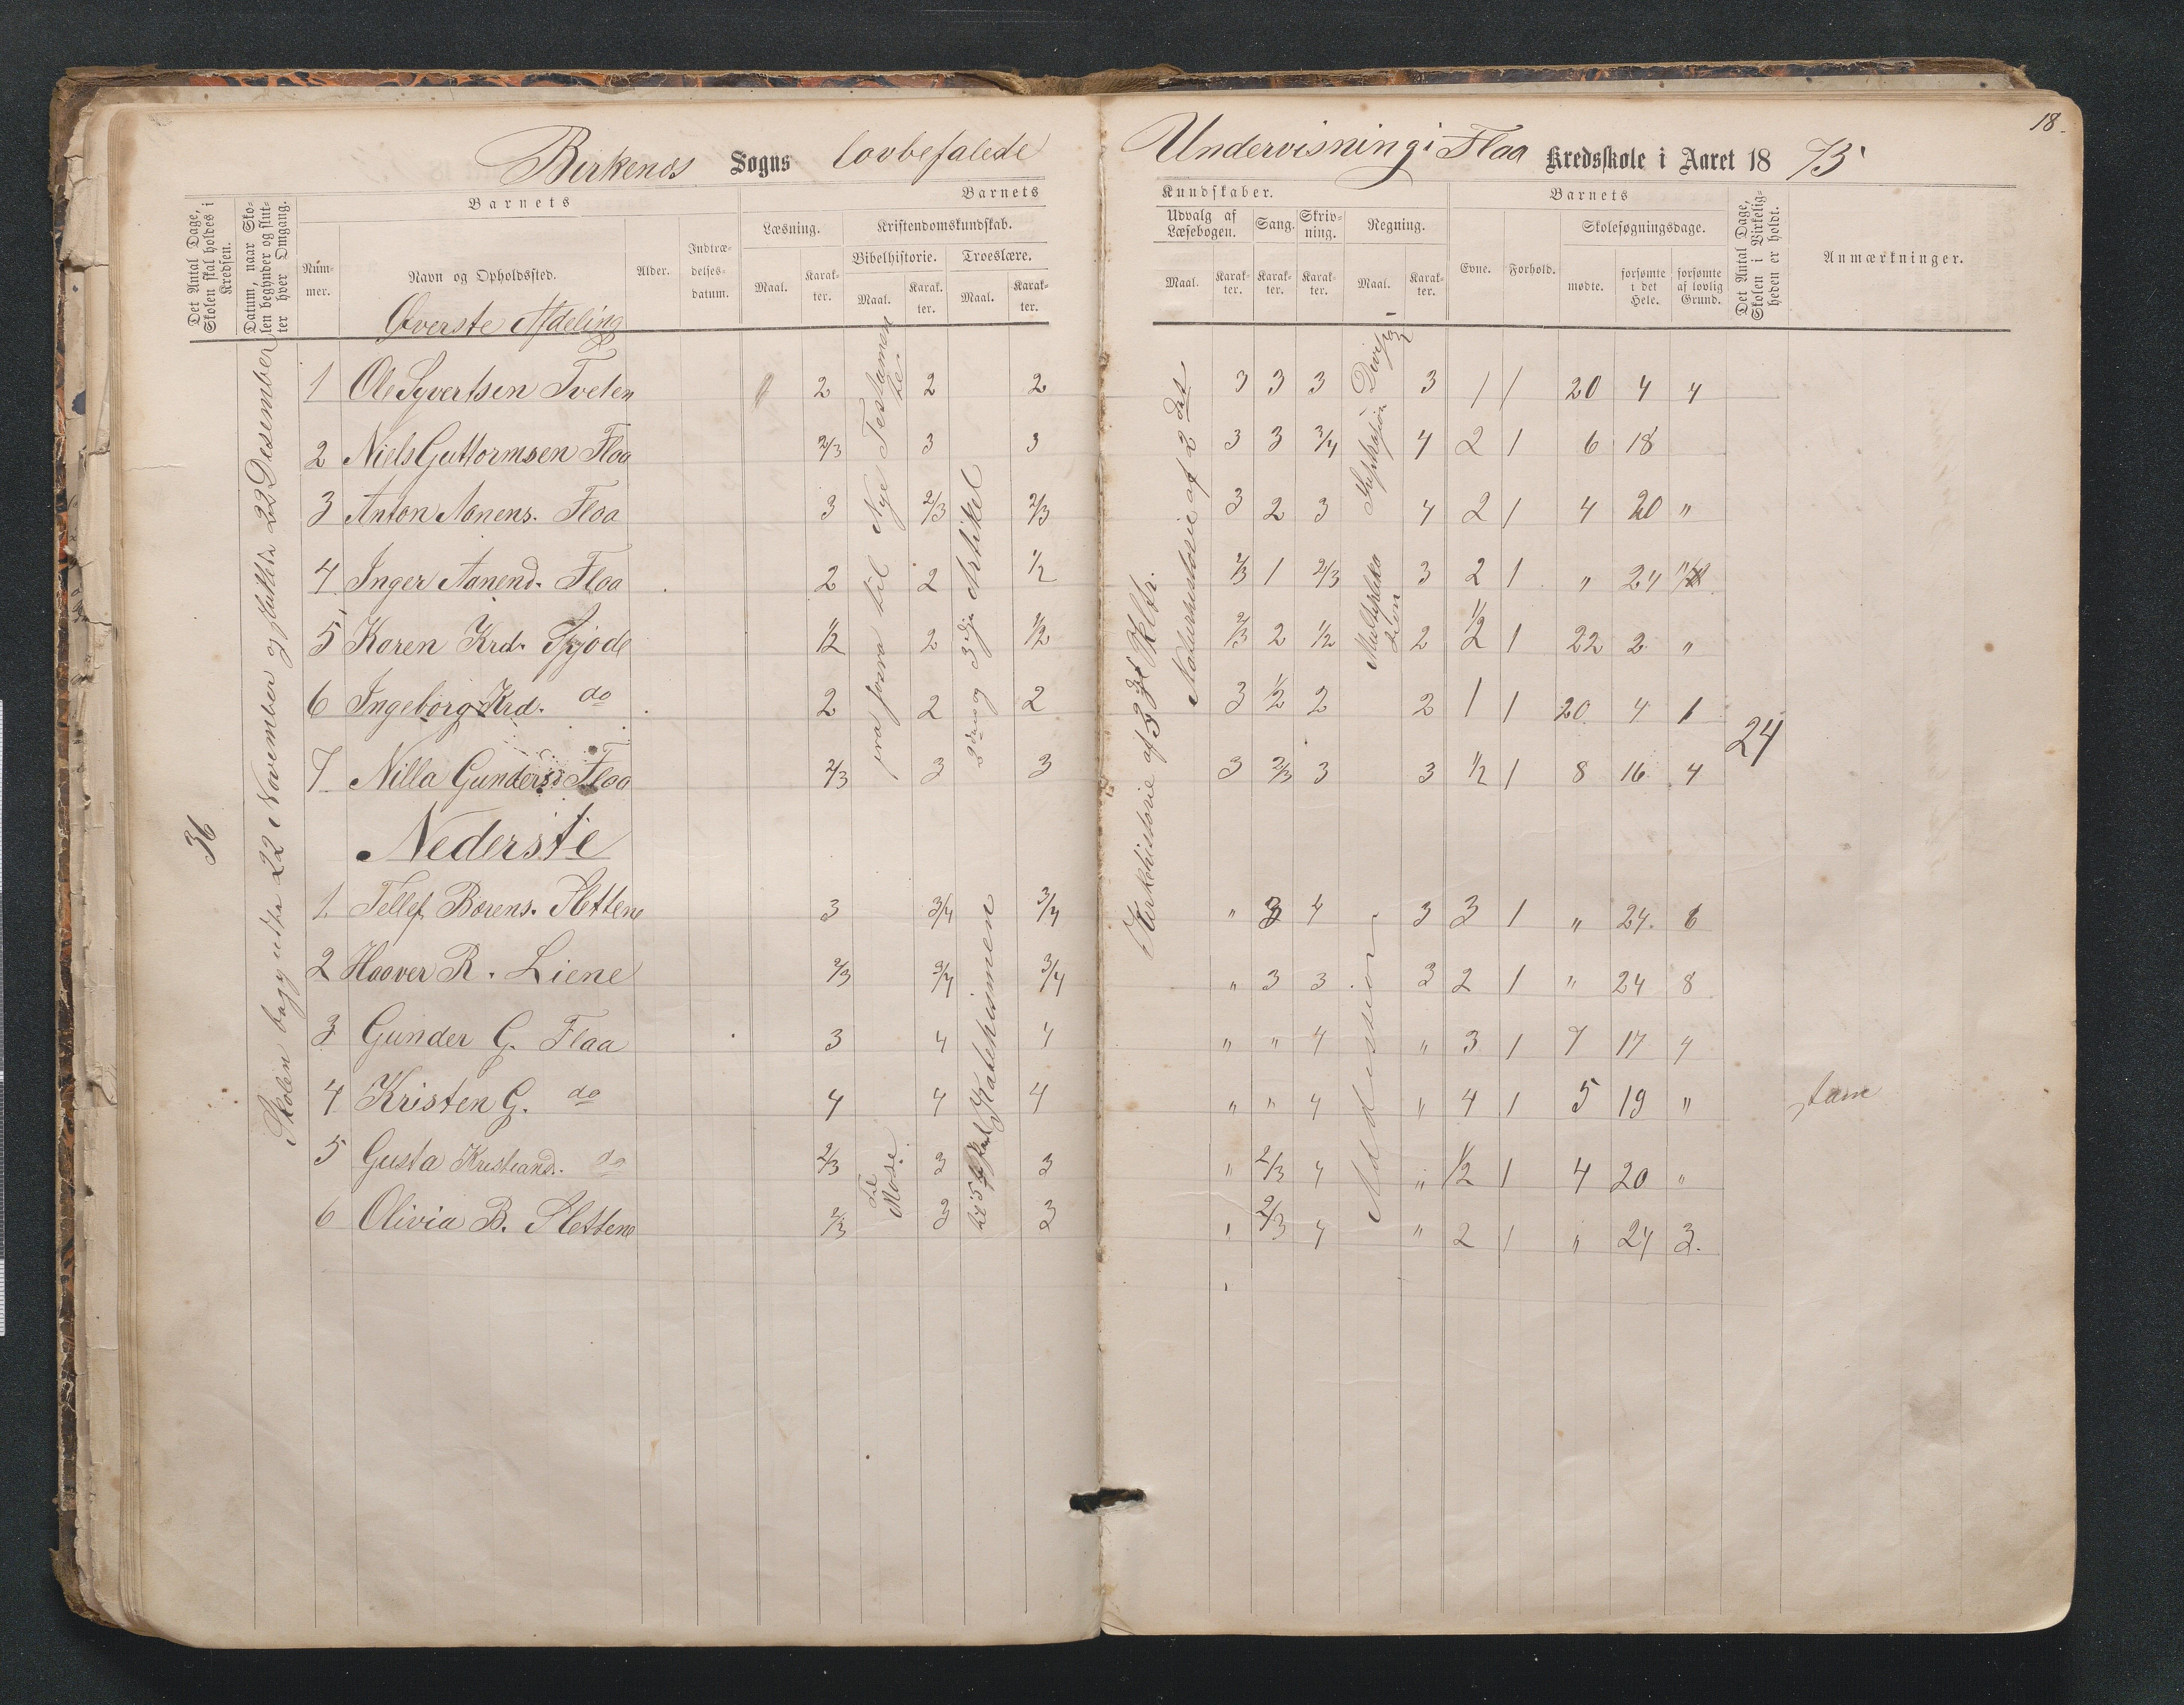 18.
Birkenes Sogns lovbefalede Undervisning i Flaa Kredsskole i Aaret 1875
Det Antal Dage, Skolen skal holdes i Kredsen.
Datum, naar Skolen begynder og slutter hver Omgang.
Barnets
Nummer.
Navn og Opholdssted.
Alder.
Indtrædelsesdatum.
Barnets
Læsning.
Maal.
Karakter.
Kristendomskundskab.
Bibelhistorie.
Maal.
Karakter.
Troeslære.
Maal.
Karakter.
Kundskaber.
Udvalg af Læsebogen.
Maal.
Karakter.
Sang.
Karakter.
Skrivning.
Karakter.
Regning.
Maal.
Karakter.
Barnets
Evne.
Forhold.
Skolesøgningsdage.
mødte.
forsømte i det Hele.
forsømte af lovlig Grund.
Det Antal Dage, Skolen i Virkeligheden er holdt.
Anmærkninger.
Øverste Afdeling
36
Skolen begyndte 22 November og sluttede 22 Desember
1 Ole Syvertsen Tveten 2 2 2 3 3 3 3 1 1 20 4 4
2 Niels Guttormsen Flaa 2/3 3 3 3 3 3/4 4 2 1 6 18
3 Anton Aanens. Flaa 3 2/3 2/3 3 2 3 4 2 1 4 20 "
4 Inger Aanend. Flaa 2 2 1/2 2/3 1 2/3 3 2 1 " 24
5 Karen Krd. 1/2 2 1/2 2/3 2 1/2 2 1/2 1 22 2 "
6 Ingeborg Krd. do 2 2 2 3 1/2 2 2 1 1 20 4 1
7 Nilla Gundersd Flaa 2/3 3 3 3 2/3 3 3 1/2 1 8 16 4
24
fra til Nye Testamente
2den og 3dje Artikel
Kirkehistorie af 3
Naturhistorie af 2det
Multiplikasion
Nederste
1 Tellef Borens. Slettene 3 3/4 3/4 " 3 4 3 3 1 " 24. 6
2 Haaver R. Liene 2/3 3/4 3/4 " 3 3 3 2 1 " 24 8
3 Gunder G. Flaa 3 4 4 " " 4 " 3 1 7 17 4
4 Kristen G. do 4 4 4 " " 4 " 4 1 5 19 " stam
5 Gusta Kristiand. do 2/3 3 3 " 2/3 4 " 1/2 1 4 20 "
6 Olivia B. Slettene 2/3 3 3 " 2/3 4 " 2 1 " 24 3.
til Mose.
til 5 Katekismen
Addision